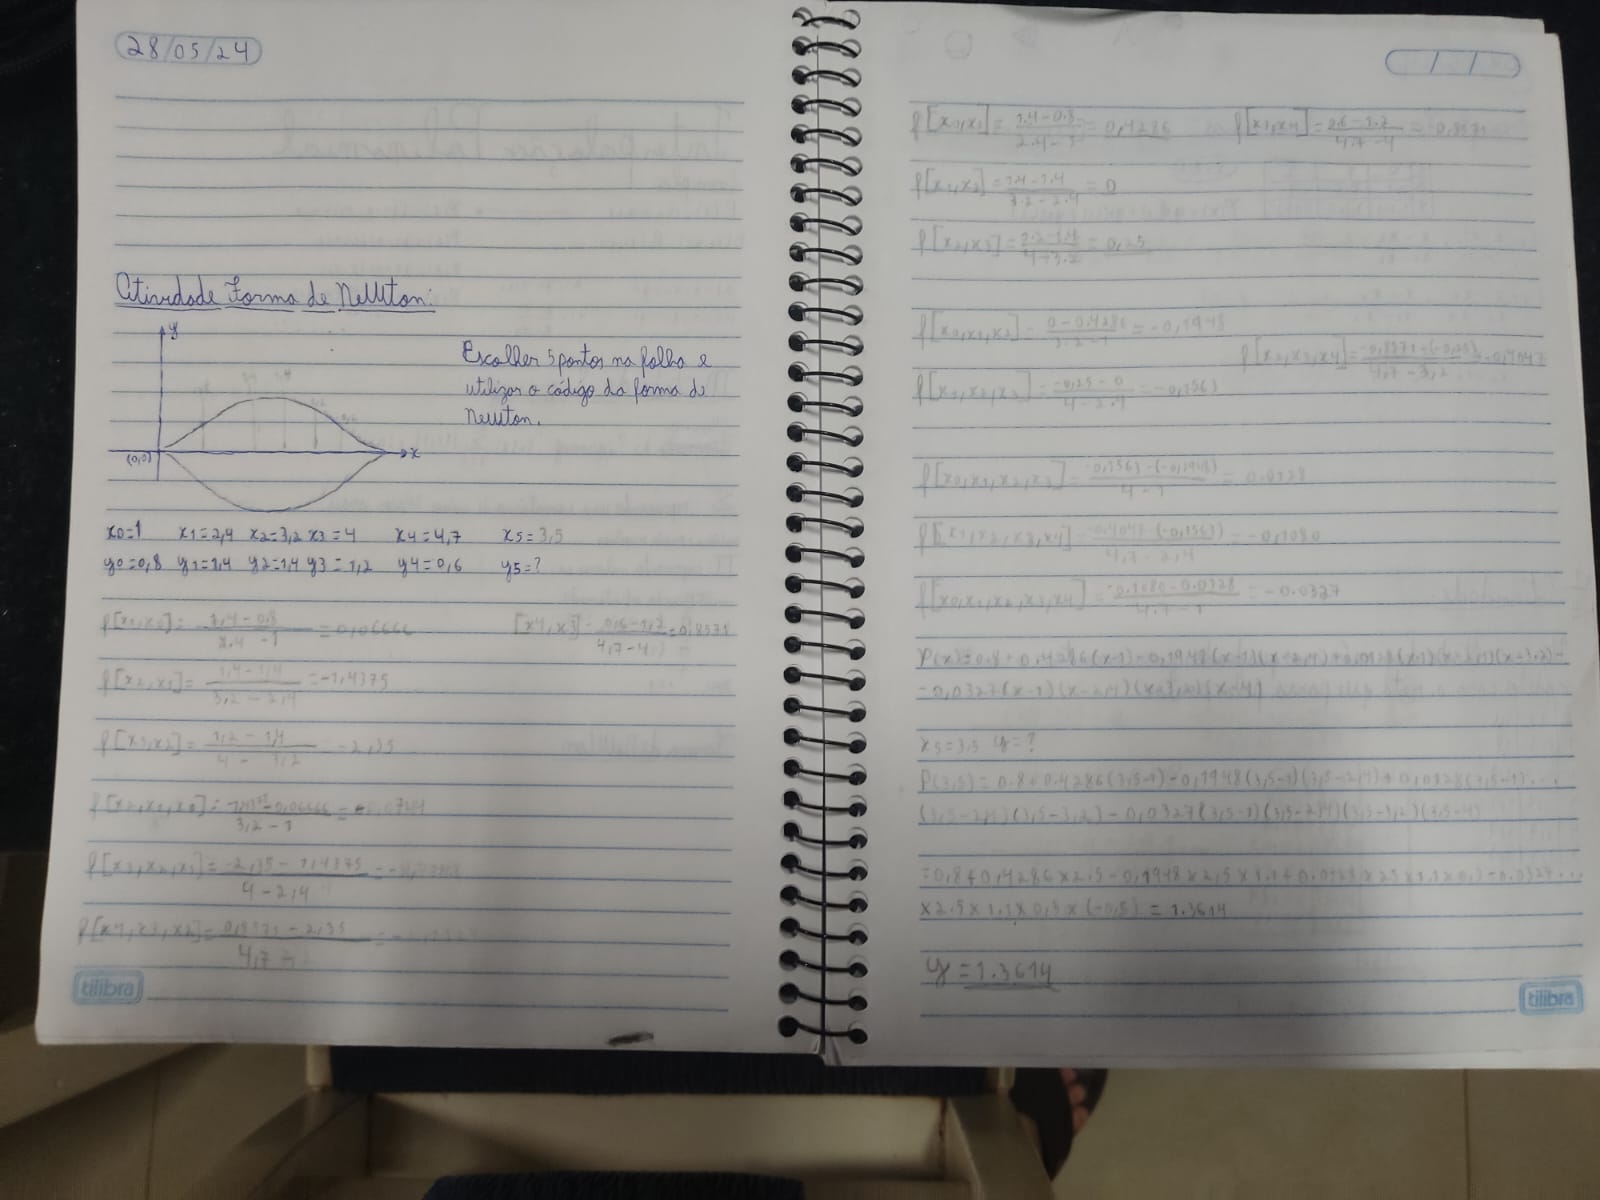 28/05/24
Atividade Forma de Newton:
y
Escolher 5 pontos na folha e
utilizar o código da forma de
Newton.
(0,0)
x
x0=1 x1=2,4 x2=3,2 x3=4 x4=4,7 x5=3,5
y0=0,8 y1=1,4 y2=1,4 y3=1,2 y4=0,6 y5=?
f[x1,x0]= 1,4-0,8 =0,06666 [x4,x3]= 0,6-1,2 =0,8571
2.4 -1 4,7-4
f[x2,x1]= 1,4-1,4 =-1,4375
3,2-2,4
f[x3,x2]= 1,2-1,4 =-2,35
4-3,2
f[x2,x1,x0]=
3,2-1
f[x3,x2,x1]= -2,35-1,4375
4-2,4
f[x4,x3,x2]= 0,8571-2,35
tilibra
/ /
f[x0,x1]= 1.4-0.8 =0,4286 f[x3,x4]= =0,8571
2.4-1 4,7-4
f[x1,x2]= 1.4-1.4 =0
3.2-2.4
f[x2,x3]= =0,25
f[x0,x1,x2]= 0-0.4286 =-0,1948
3.2-1
f[x2,x3,x4]= -0,8571-(-0,25) =-0,4047
4,7-3,2
f[x1,x2,x3]= -0,25-0 =-0,1563
4-2.4
f[x0,x1,x2,x3]= -0,1563-(-0,1948) =0.0128
4-1
f[x1,x2,x3,x4]= -0,4047-(-0,1563) =-0,1080
4,7-2,4
f[x0,x1,x2,x3,x4]= -0.1080-0.0128 =-0.0327
4.7-1
P(x)=0.8+0,4286(x-1)-0,1948(x-1)(x-2,4)+0,0128(x-1)(x-2,4)(x-3,2)-
-0,0327(x-1)(x-2,4)(x-3,2)(x-4)
x5=3,5 y=?
P(3,5)=0.8+0.4286(3,5-1)-0,1948(3,5-1)(3,5-2,4)+0,0128(3,5-1)...
(3,5-2,4)(3,5-3,2)-0,0327(3,5-1)(3,5-2,4)(3,5-3,2)(3,5-4)
=0,8+0,4286×2.5-0,1948×2,5×1,1+0.0128×2,5×1.1×0,3-0.0327...
×2.5×1.1×0,3×(-0,5)=1.3614
y=1.3614
tilibra